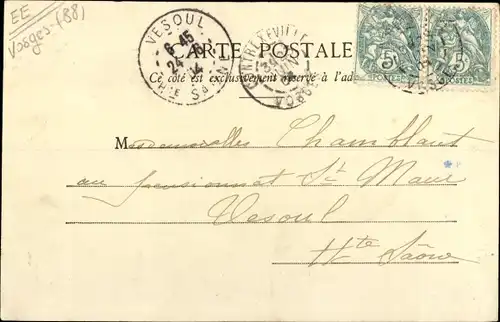 EE
Vosges-(88)
VESOUL
6-45
24-6
04
Hte SAÔNE
CONTREXEVILLE
VOSGES
5
POSTES
5
POSTES
CARTE POSTALE
Ce côté est exclusivement réservé à l'ad
Mesdemoiselles Chamblant
au pensionnat St Maur
Vesoul
Hte Saône